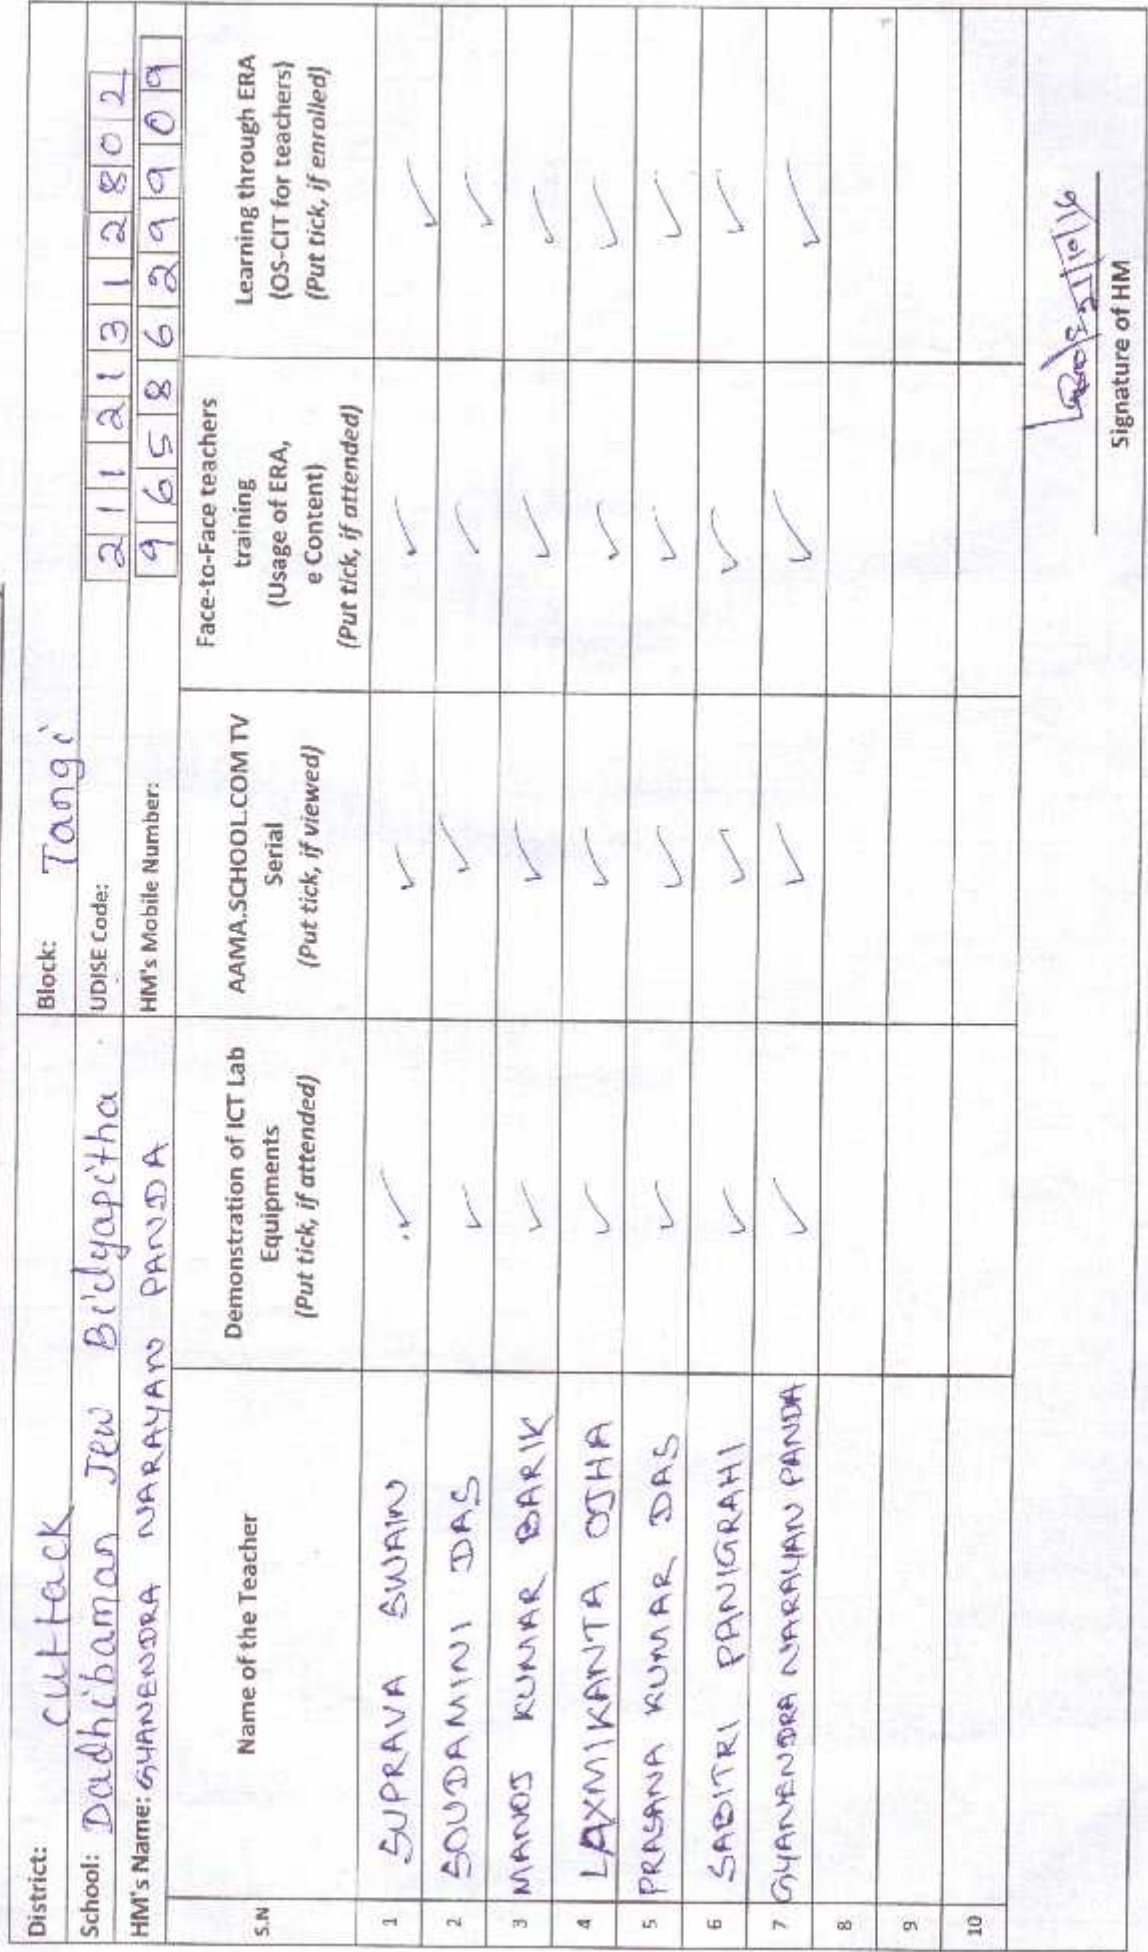 District: Cuttack Block: Tangi
School: Dadhibaman Jew Bidyapitha UDISE Code: 21121312802
HM's Name: GYANENDRA NARAYAN PANDA HM's Mobile Number: 9658629909
S.N Name of the Teacher Demonstration of ICT Lab Equipments (Put tick, if attended) AAMA.SCHOOL.COM TV Serial (Put tick, if viewed) Face-to-Face teachers training (Usage of ERA, e Content) (Put tick, if attended) Learning through ERA (OS-CIT for teachers) (Put tick, if enrolled)
1 SUPRAVA SWAIN ✓ ✓ ✓ ✓
2 SOUDAMINI DAS ✓ ✓ ✓ ✓
3 MANOJ KUMAR BARIK ✓ ✓ ✓ ✓
4 LAXMIKANTA OJHA ✓ ✓ ✓ ✓
5 PRASANA KUMAR DAS ✓ ✓ ✓ ✓
6 SABITRI PANIGRAHI ✓ ✓ ✓ ✓
7 GYANENDRA NARAYAN PANDA ✓ ✓ ✓ ✓
8
9
10
Signature of HM